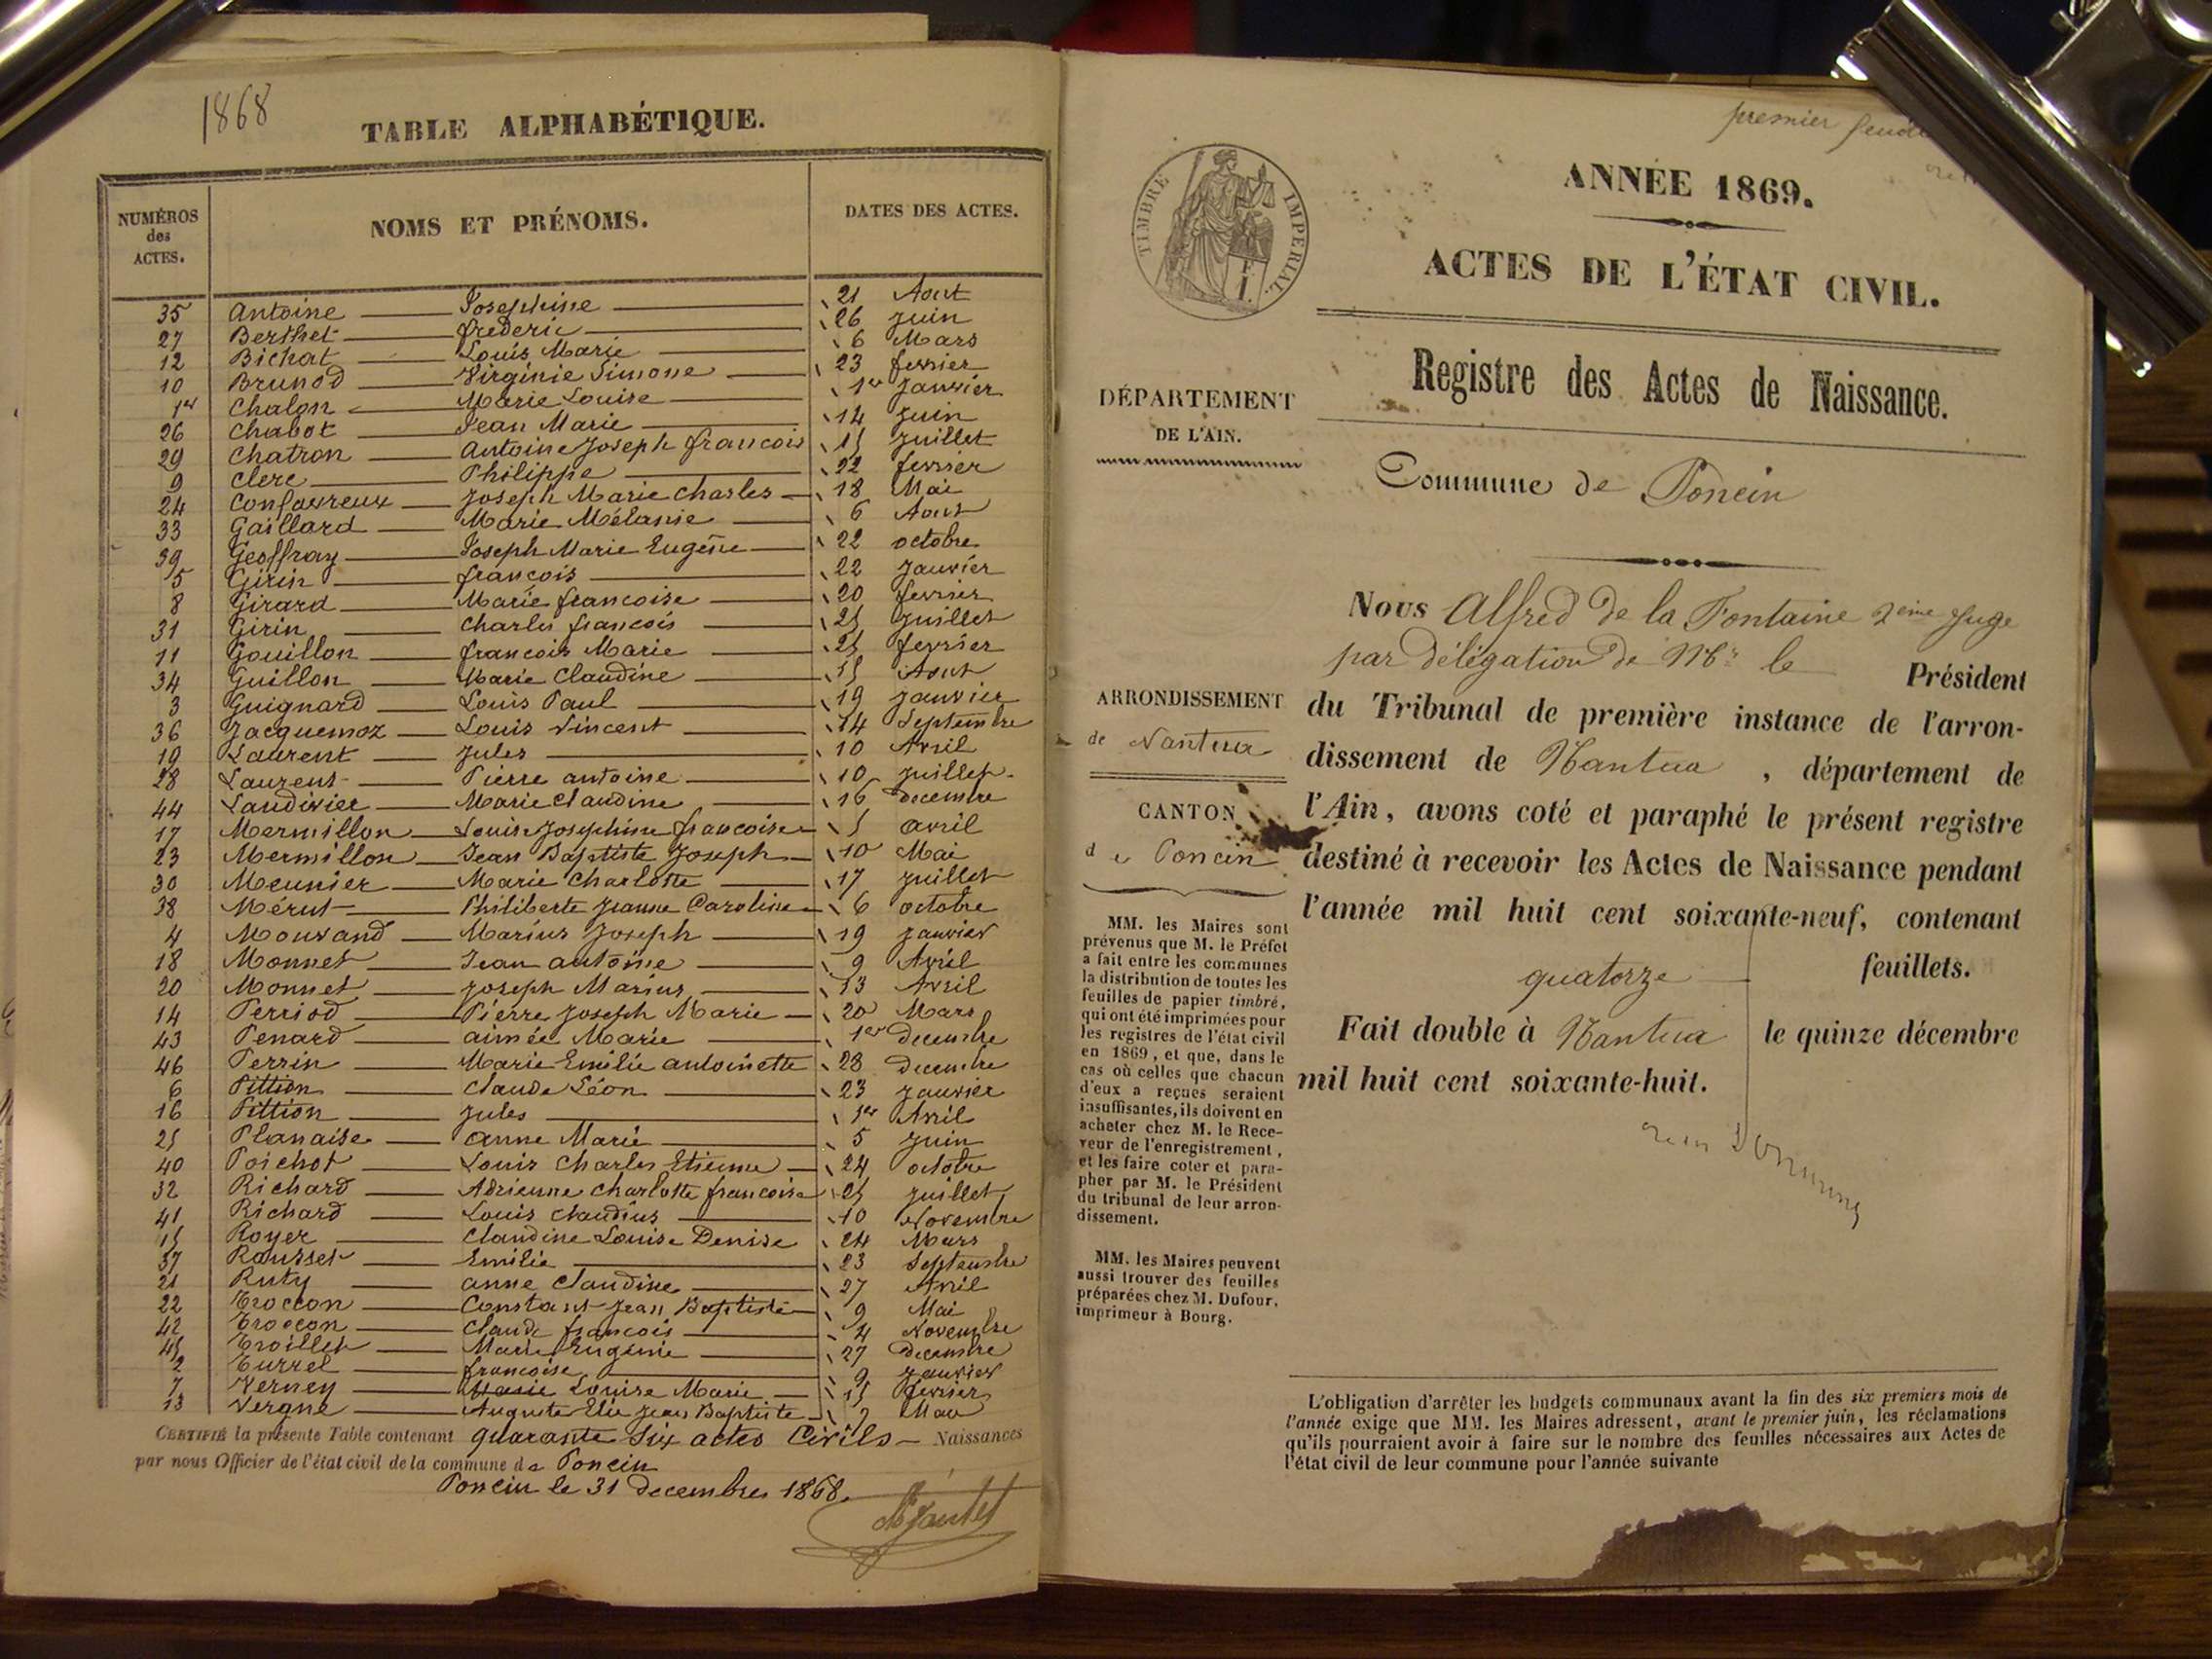 1868
TABLE ALPHABÉTIQUE.
NUMÉROS des ACTES. NOMS ET PRÉNOMS. DATES DES ACTES.
35 Antoine Josephine 21 Aout
27 Berthet frederic 26 juin
12 Bichat Louis Marie 6 Mars
10 Brunod Virginie Simone 23 fevrier
1er Chalon Marie Louise 1er Janvier
26 Chabot Jean Marie 14 Juin
29 Chatron Antoine Joseph francois 15 Juillet
9 Clerc Philippe 22 fevrier
24 Confavreux Joseph Marie Charles 18 Mai
33 Gaillard Marie Mélanie 6 Aout
39 Geoffray Joseph Marie Eugène 22 octobre
5 Girin francois 22 Janvier
8 Girard Marie francoise 20 fevrier
31 Girin Charles francois 25 Juillet
11 Gouillon francois Marie 25 fevrier
34 Guillon Marie Claudine 15 Aout
3 Guignard Louis Paul 19 janvier
36 Jacquemoz Louis Vincent 14 Septembre
19 Laurent Jules 10 Avril
28 Laurent Pierre antoine 10 juillet
44 Laudivier Marie Claudine 16 decembre
17 Mermillon Louise Josephine francoise 5 avril
23 Mermillon Jean Baptiste Joseph 10 Mai
30 Meunier Marie Charlotte 17 juillet
38 Mérut Philiberte Jeanne Caroline 6 octobre
4 Mouvand Marius Joseph 19 janvier
18 Monnet Jean antoine 9 Avril
20 Monnet joseph Marius 13 Avril
14 Perriod Pierre Joseph Marie 20 Mars
43 Penard aimée Marie 1er Decembre
46 Perrin Marie Emilie antoinette 28 Decembre
6 Pittion Claude Léon 23 janvier
16 Pittion Jules 1er Avril
25 Planaise anne Marie 5 juin
40 Poichot Louis Charles Etienne 24 octobre
32 Richard Adrienne Charlotte francoise 25 juillet
41 Richard Louis Claudius 10 Novembre
15 Royer Claudine Louise Denise 24 Mars
37 Rousset Emilie 23 Septembre
21 Ruty anne Claudine 27 Avril
22 Troccon Constant Jean Baptiste 9 Mai
42 Troccon Claude francois 4 Novembre
45 Troillet Marie Eugénie 27 decembre
2 Turrel francoise 9 Janvier
7 Verney Marie Louise Marie 15 fevrier
13 Vergne Auguste Elie Jean Baptiste
CERTIFIÉ la présente Table contenant quarante Six actes Civils Naissances
par nous Officier de l'état civil de la commune de Poncin
Poncin le 31 decembre 1868.
premier
TIMBRE IMPERIAL.
ANNÉE 1869.
ACTES DE L'ÉTAT CIVIL.
Registre des Actes de Naissance.
DÉPARTEMENT
DE L'AIN.
Commune de Poncin
Nous Alfred de la Fontaine 2ème Juge
par délégation de Mr le Président
du Tribunal de première instance de l'arron-
dissement de Nantua, département de
l'Ain, avons coté et paraphé le présent registre
destiné à recevoir les Actes de Naissance pendant
l'année mil huit cent soixante-neuf, contenant
quatorze feuillets.
Fait double à Nantua le quinze décembre
mil huit cent soixante-huit.
ARRONDISSEMENT
de Nantua
CANTON
de Poncin
MM. les Maires sont
prévenus que M. le Préfet
a fait entre les communes
la distribution de toutes les
feuilles de papier timbré,
qui ont été imprimées pour
les registres de l'état civil
en 1869, et que, dans le
cas où celles que chacun
d'eux a reçues seraient
insuffisantes, ils doivent en
acheter chez M. le Rece-
veur de l'enregistrement,
et les faire coter et para-
pher par M. le Président
du tribunal de leur arron-
dissement.
MM. les Maires peuvent
aussi trouver des feuilles
préparées chez M. Dufour,
imprimeur à Bourg.
L'obligation d'arrêter les budgets communaux avant la fin des six premiers mois de
l'année exige que MM. les Maires adressent, avant le premier juin, les réclamations
qu'ils pourraient avoir à faire sur le nombre des feuilles nécessaires aux Actes de
l'état civil de leur commune pour l'année suivante